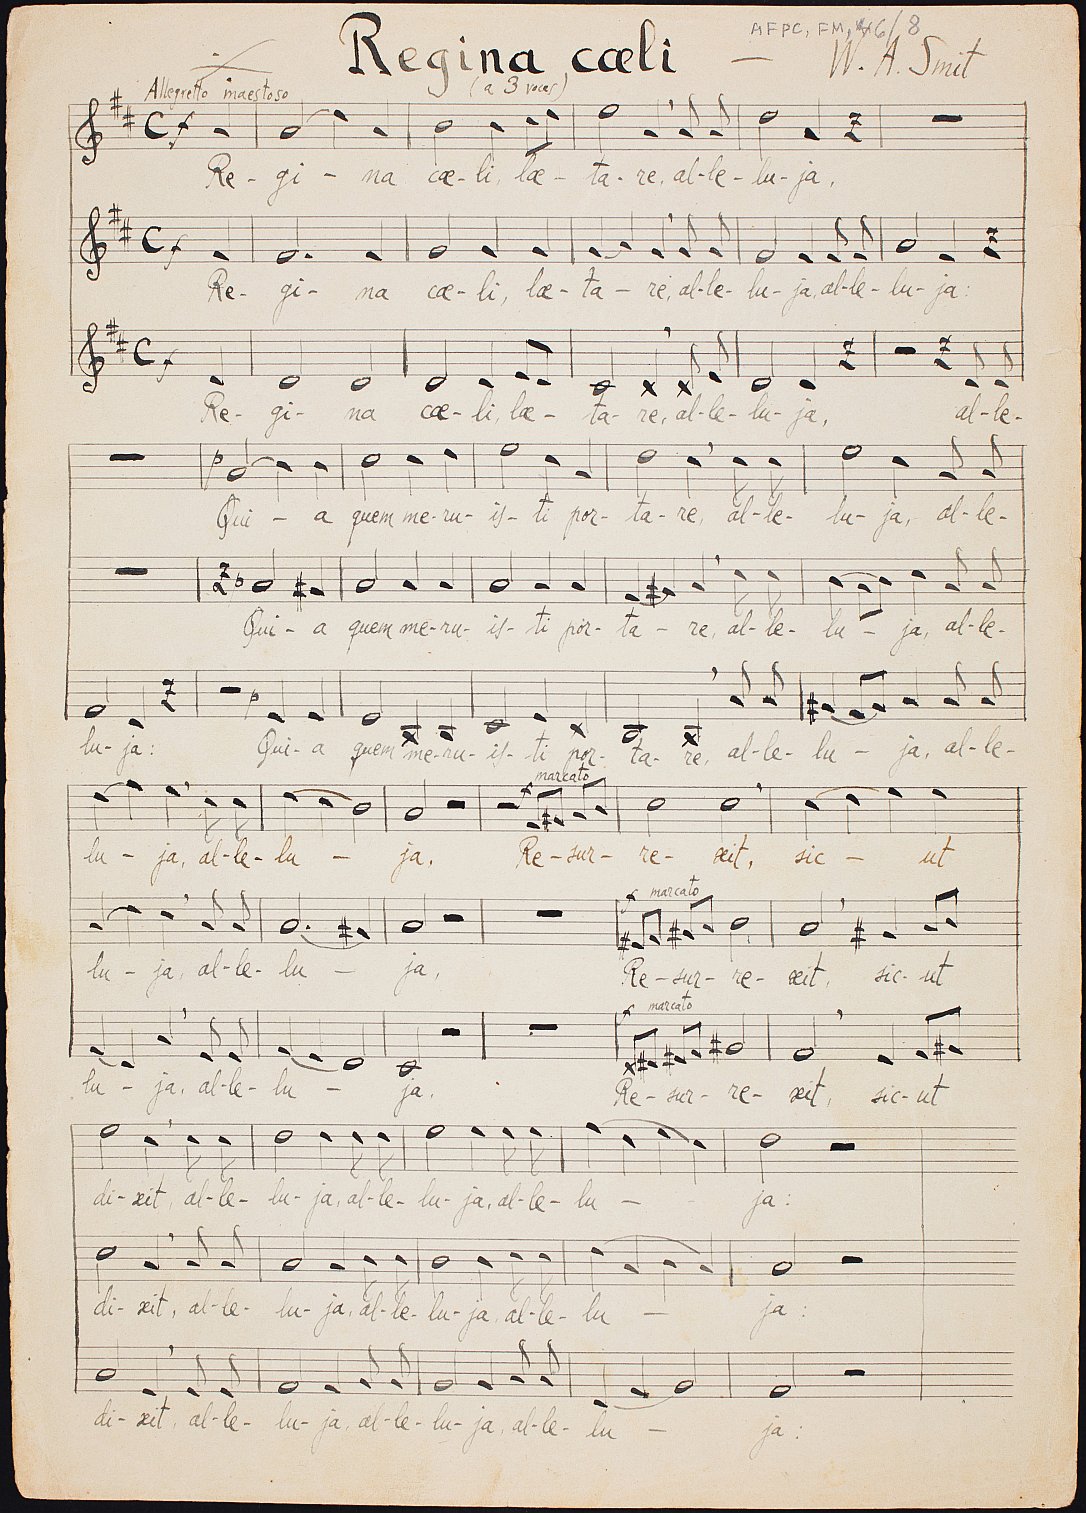 AFPC, FM, 46/8
Regina cæli — W. A. Smit
(a 3 voces)
Allegretto maestoso
f
Re - gi - na cæ - li, læ - ta - re, al - le - lu - ja,
f
Re - gi - na cæ - li, læ - ta - re, al - le - lu - ja, al - le - lu - ja:
f
Re - gi - na cæ - li, læ - ta - re, al - le - lu - ja, al - le -
p
Qui - a quem me - ru - is - ti por - ta - re, al - le - lu - ja, al - le -
p
Qui - a quem me - ru - is - ti por - ta - re, al - le - lu - ja, al - le -
p
lu - ja: Qui - a quem me - ru - is - ti por - ta - re, al - le - lu - ja, al - le -
f marcato
lu - ja, al - le - lu - ja, Re - sur - re - xit, sic - ut
f marcato
lu - ja, al - le - lu - ja, Re - sur - re - xit, sic - ut
f marcato
lu - ja, al - le - lu - ja, Re - sur - re - xit, sic - ut
di - xit, al - le - lu - ja, al - le - lu - ja, al - le - lu - ja:
di - xit, al - le - lu - ja, al - le - lu - ja, al - le - lu - ja:
di - xit, al - le - lu - ja, al - le - lu - ja, al - le - lu - ja: